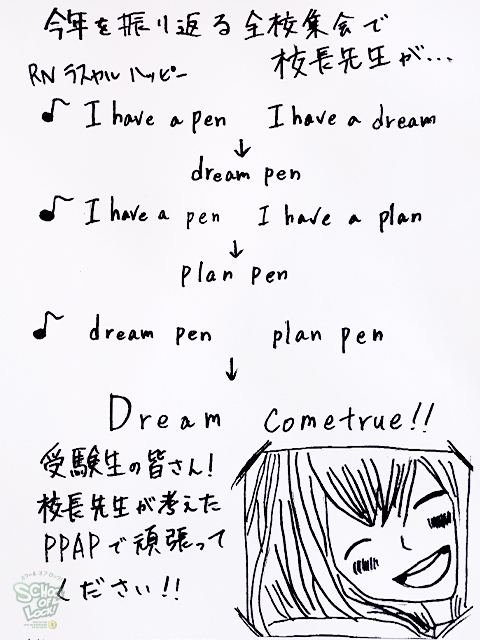 今年を振り返る全校集会で
校長先生が…
RN ラスカル ハッピー
I have a pen I have a dream
↓
dream pen
I have a pen I have a plan
↓
plan pen
dream pen plan pen
↓
Dream Cometrue!!
受験生の皆さん!
校長先生が考えた
PPAPで頑張って
ください!!
スクール オブ ロック!
SCHOOL OF LOCK!